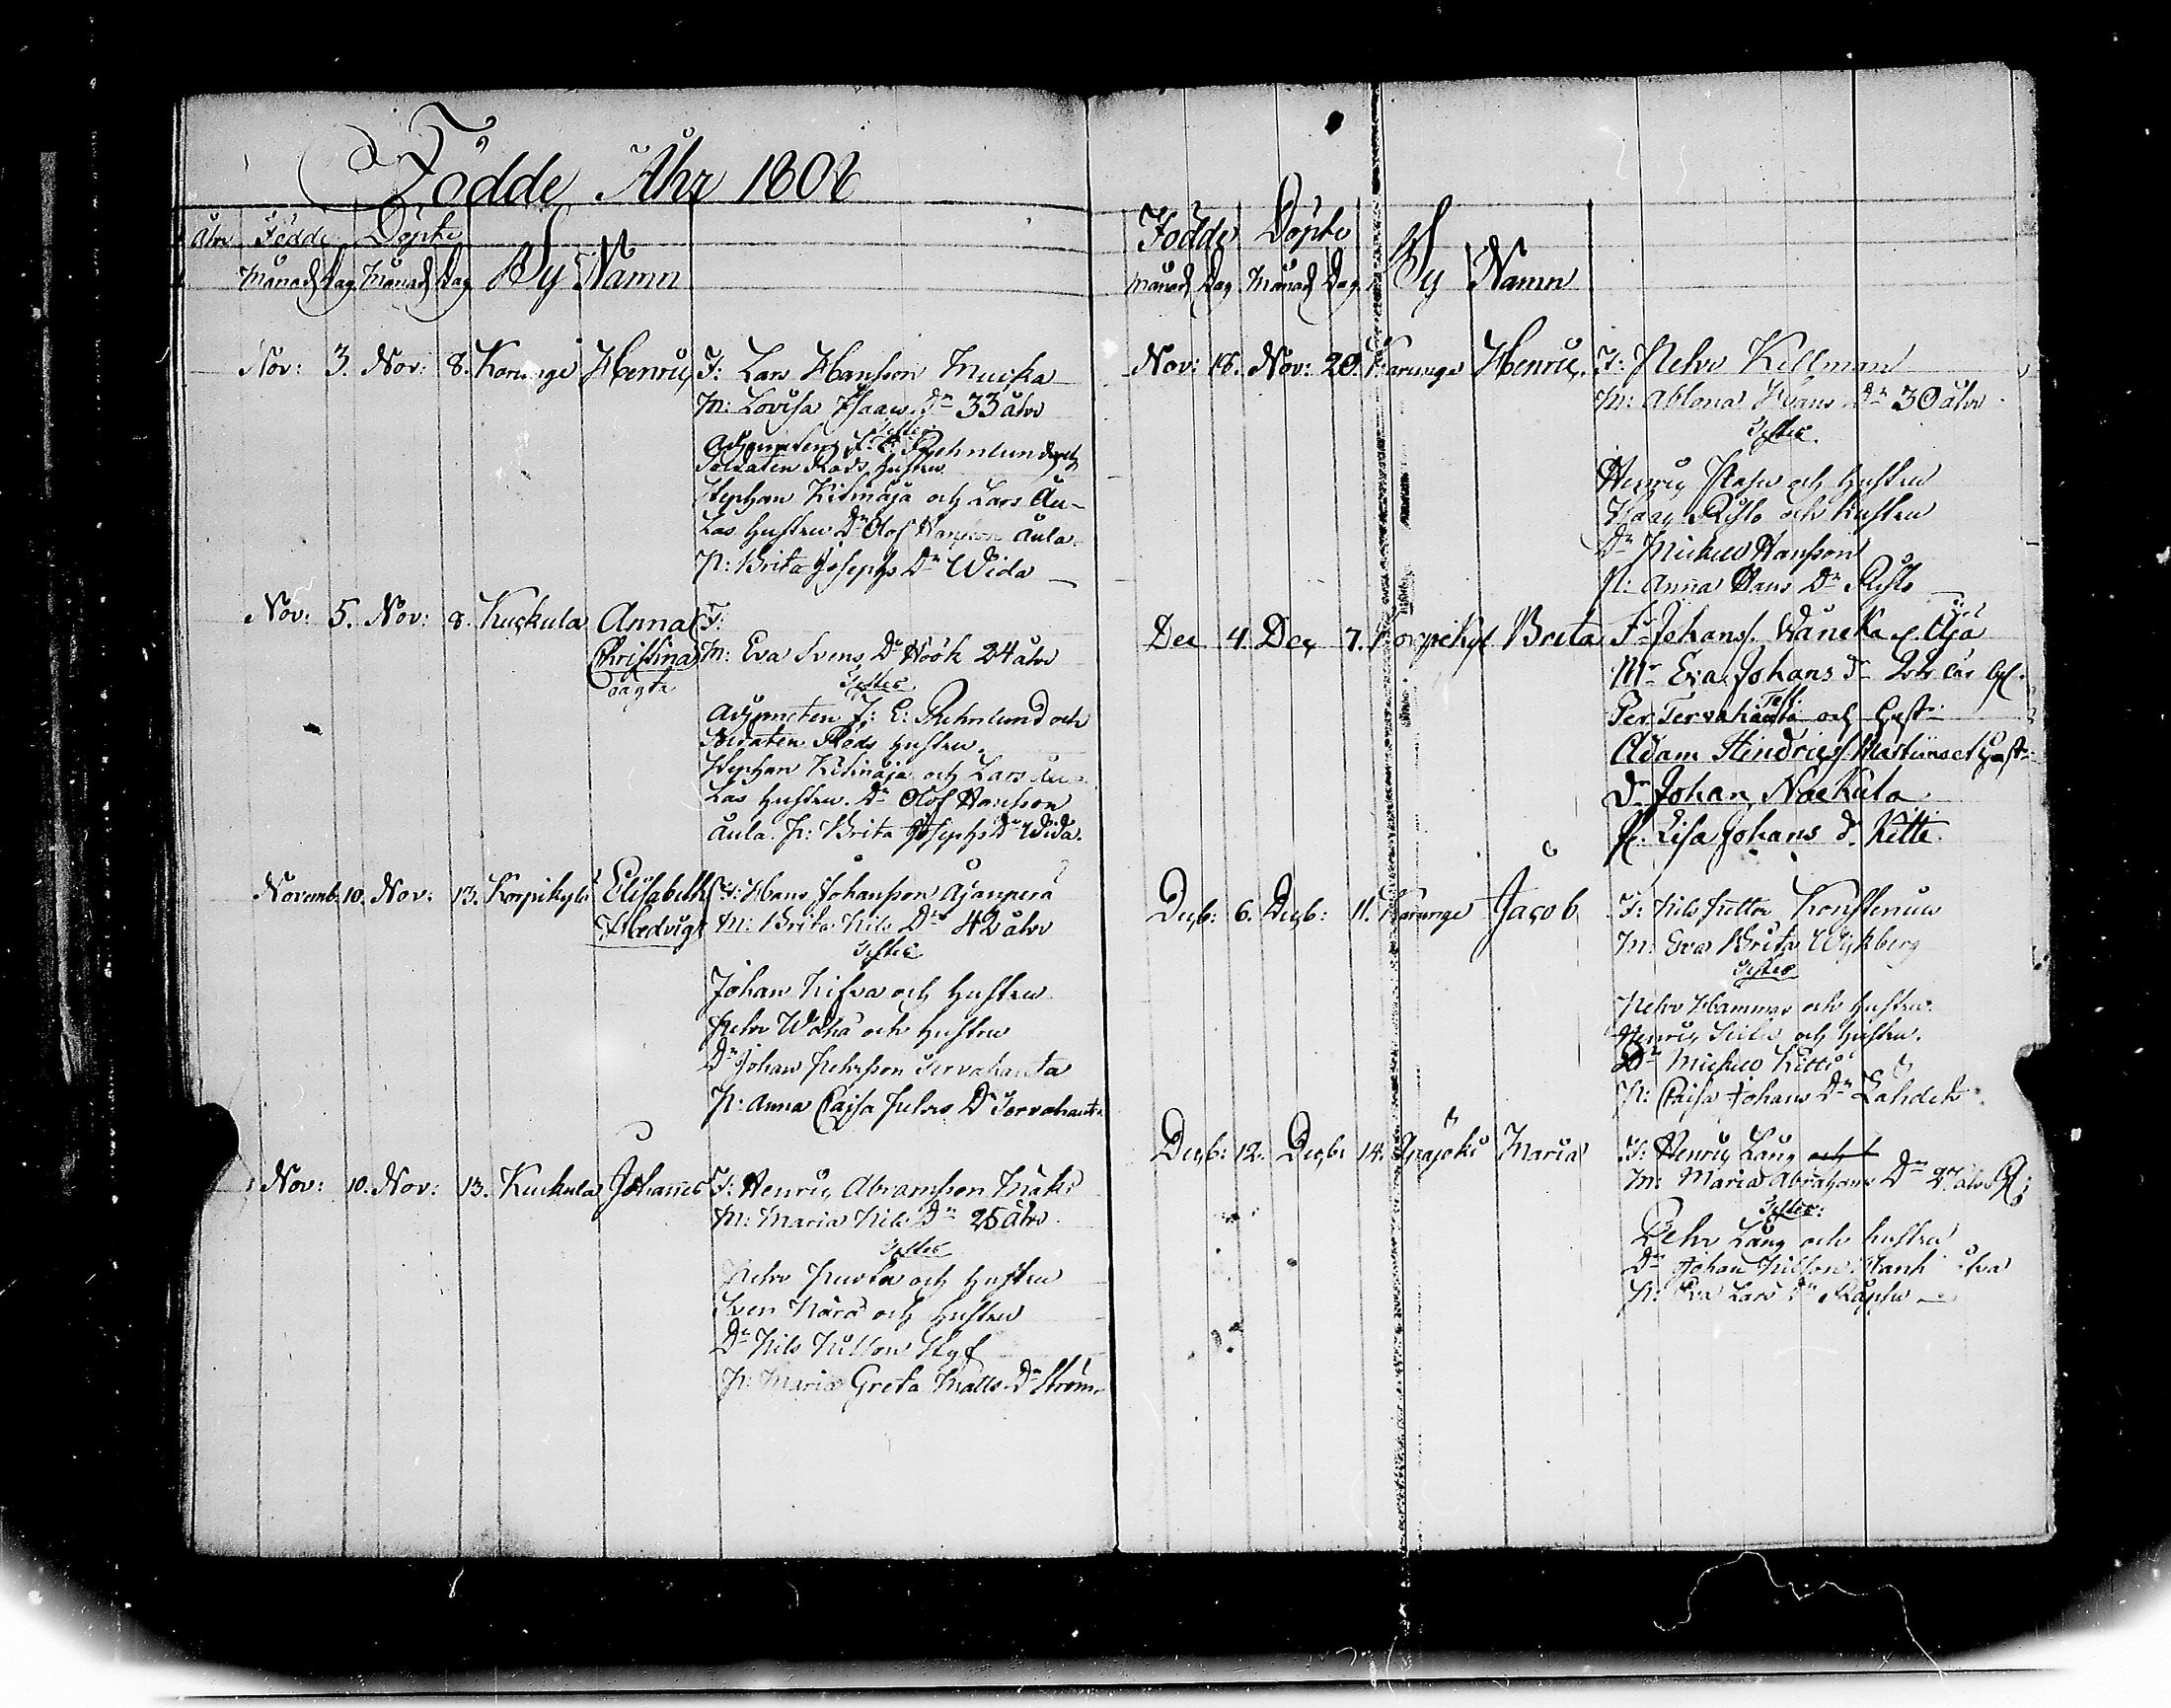 Födde Åhr 1808
Åhr Födde Döpte
Månad Dag Månad Dag By Namn
Nov: 3. Nov: 8. Karunge Henric F: Lars Hansson Mucka
M: Lovisa Isaacs Dr 33 åhr
Testes
Adjuncten J: E: Rehnlund och
Soldaten Rods hustru
Stephan Kitinäja och Lars Au-
las hustru Dr Olof Hansson Aula
P: Brita Josephs Dr Wida
Nov: 5. Nov: 8. Kuckula Anna F:
Christina M: Eva Svens Dr Höök 24 åhr
oägta Testes
Adjuncten J: E: Rehnlund och
Soldaten Rods hustru.
Stephan Kitinäja och Lars Au-
las hustru. Dr Olof Hansson
Aula. P: Brita Josephs Dr Wida.
Novemb: 10. Nov: 13. Korpikylä Elisabeth F: Hans Johansson Äjanperä
Hedvig M: Brita Nils Dr 42 åhr
Testes
Johan Niska och hustru
Pehr Waha och hustru
Dr Johan Pehrsson Tervahauta
P: Anna Cajsa Pehrs Dr Tervahauta
Nov: 10. Nov: 13. Kuckula Johannes F: Henric Abramsson Mäki
M: Maria Nils Dr 25 åhr
Testes
Pehr och hustru
Sven Nära och hustru
Dr Nils Nilsson
P: Maria Greta Matts Dr Ström
Födde Döpte
Månad Dag Månad Dag By Namn
Nov: 18. Nov: 20. Karunge Henric. F: Pehr Kellman
M: Ablona Hans Dr 30 åhr
Testes
Henric och hustru
Isaac Risto och hustru
Dr Mickel Hansson
P: Anna Hans Dr Risto
Dec 4. Dec 7. Korpikyl Brita Fr Johan Äjä
Mr Eva Johans dr
Test
Per Tervahauta och hust
Adam Hindricss
Dr Johan Naekula
P. Lisa Johans d. Kitti
Decb: 6. Decb: 11. Karunge Jacob F: Nils Petter Konstenius
M: Eva Brita Wijkberg
Testes
Pehr Hammar och hustru.
Henric och hustru.
Dr Mickel Kitti
P: Caisa Johans Dr Lahdet
Decb: 12. Decb: 14. Maria F: Henric Lång och
M: Maria Abrahams Dr 27 åhr
Testes:
Pehr Lång och hustru
Dr Johan Nilsson
P: Eva Lars Dr